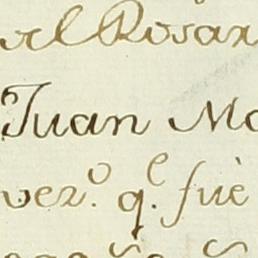 el Rosar
Juan Mo
vez.º q.e fuè